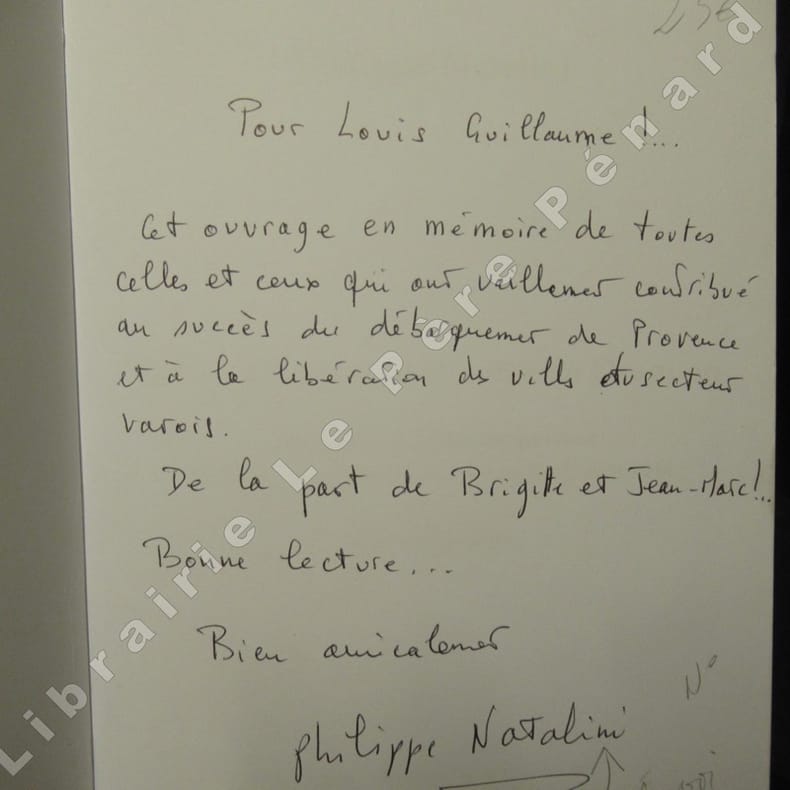 Pour Louis Guillaume !...
Cet ouvrage en mémoire de toutes
celles et ceux qui ont vaillement contribué
au succès du débarquement de Provence
et à la libération des villes du secteur
varois.
De la part de Brigitte et Jean-Marc !...
Bonne lecture...
Bien amicalement
Philippe Natalini
N°
Librairie Le Père Pénard